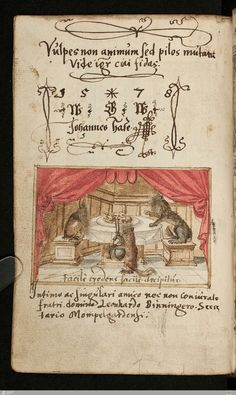 Vulpes non animum sed pilos mutant
Vide igr cui fidas.
1 5 * 7 8
W B W
Johannes hase
facile credens facile decipitur
Intimo ac singulari amico nec non coniurato
fratri domino Leonhardo Binningero Secre
tario Mompelgardensi.